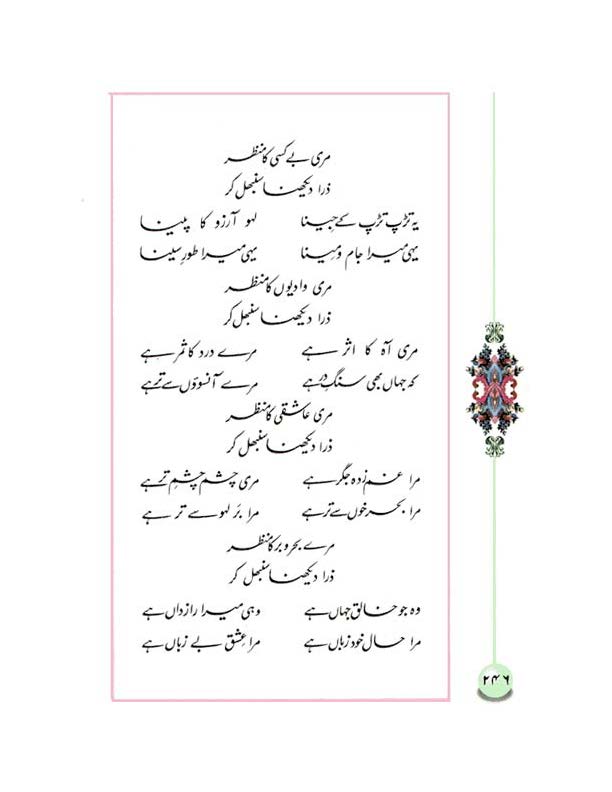 مری بے کسی کا منظر
ذرا دیکھنا سنبھل کر
یہ تڑپ تڑپ کے جینا لہو آرزو کا پینا
یہی میرا جام و مینا یہی میرا طورِ سینا
مری وادیوں کا منظر
ذرا دیکھنا سنبھل کر
مری آہ کا اثر ہے مرے درد کا ثمر ہے
کہ جہاں بھی سنگِ در ہے مرے آنسوؤں سے تر ہے
مری عاشقی کا منظر
ذرا دیکھنا سنبھل کر
مرا غم زدہ جگر ہے مری چشم چشمِ تر ہے
مرا بحر خوں سے تر ہے مرا بَر لہو سے تر ہے
مرے بحر و بر کا منظر
ذرا دیکھنا سنبھل کر
وہ جو خالقِ جہاں ہے وہی میرا رازداں ہے
مرا حال خود زباں ہے مرا عشق بے زباں ہے
۲۴۶